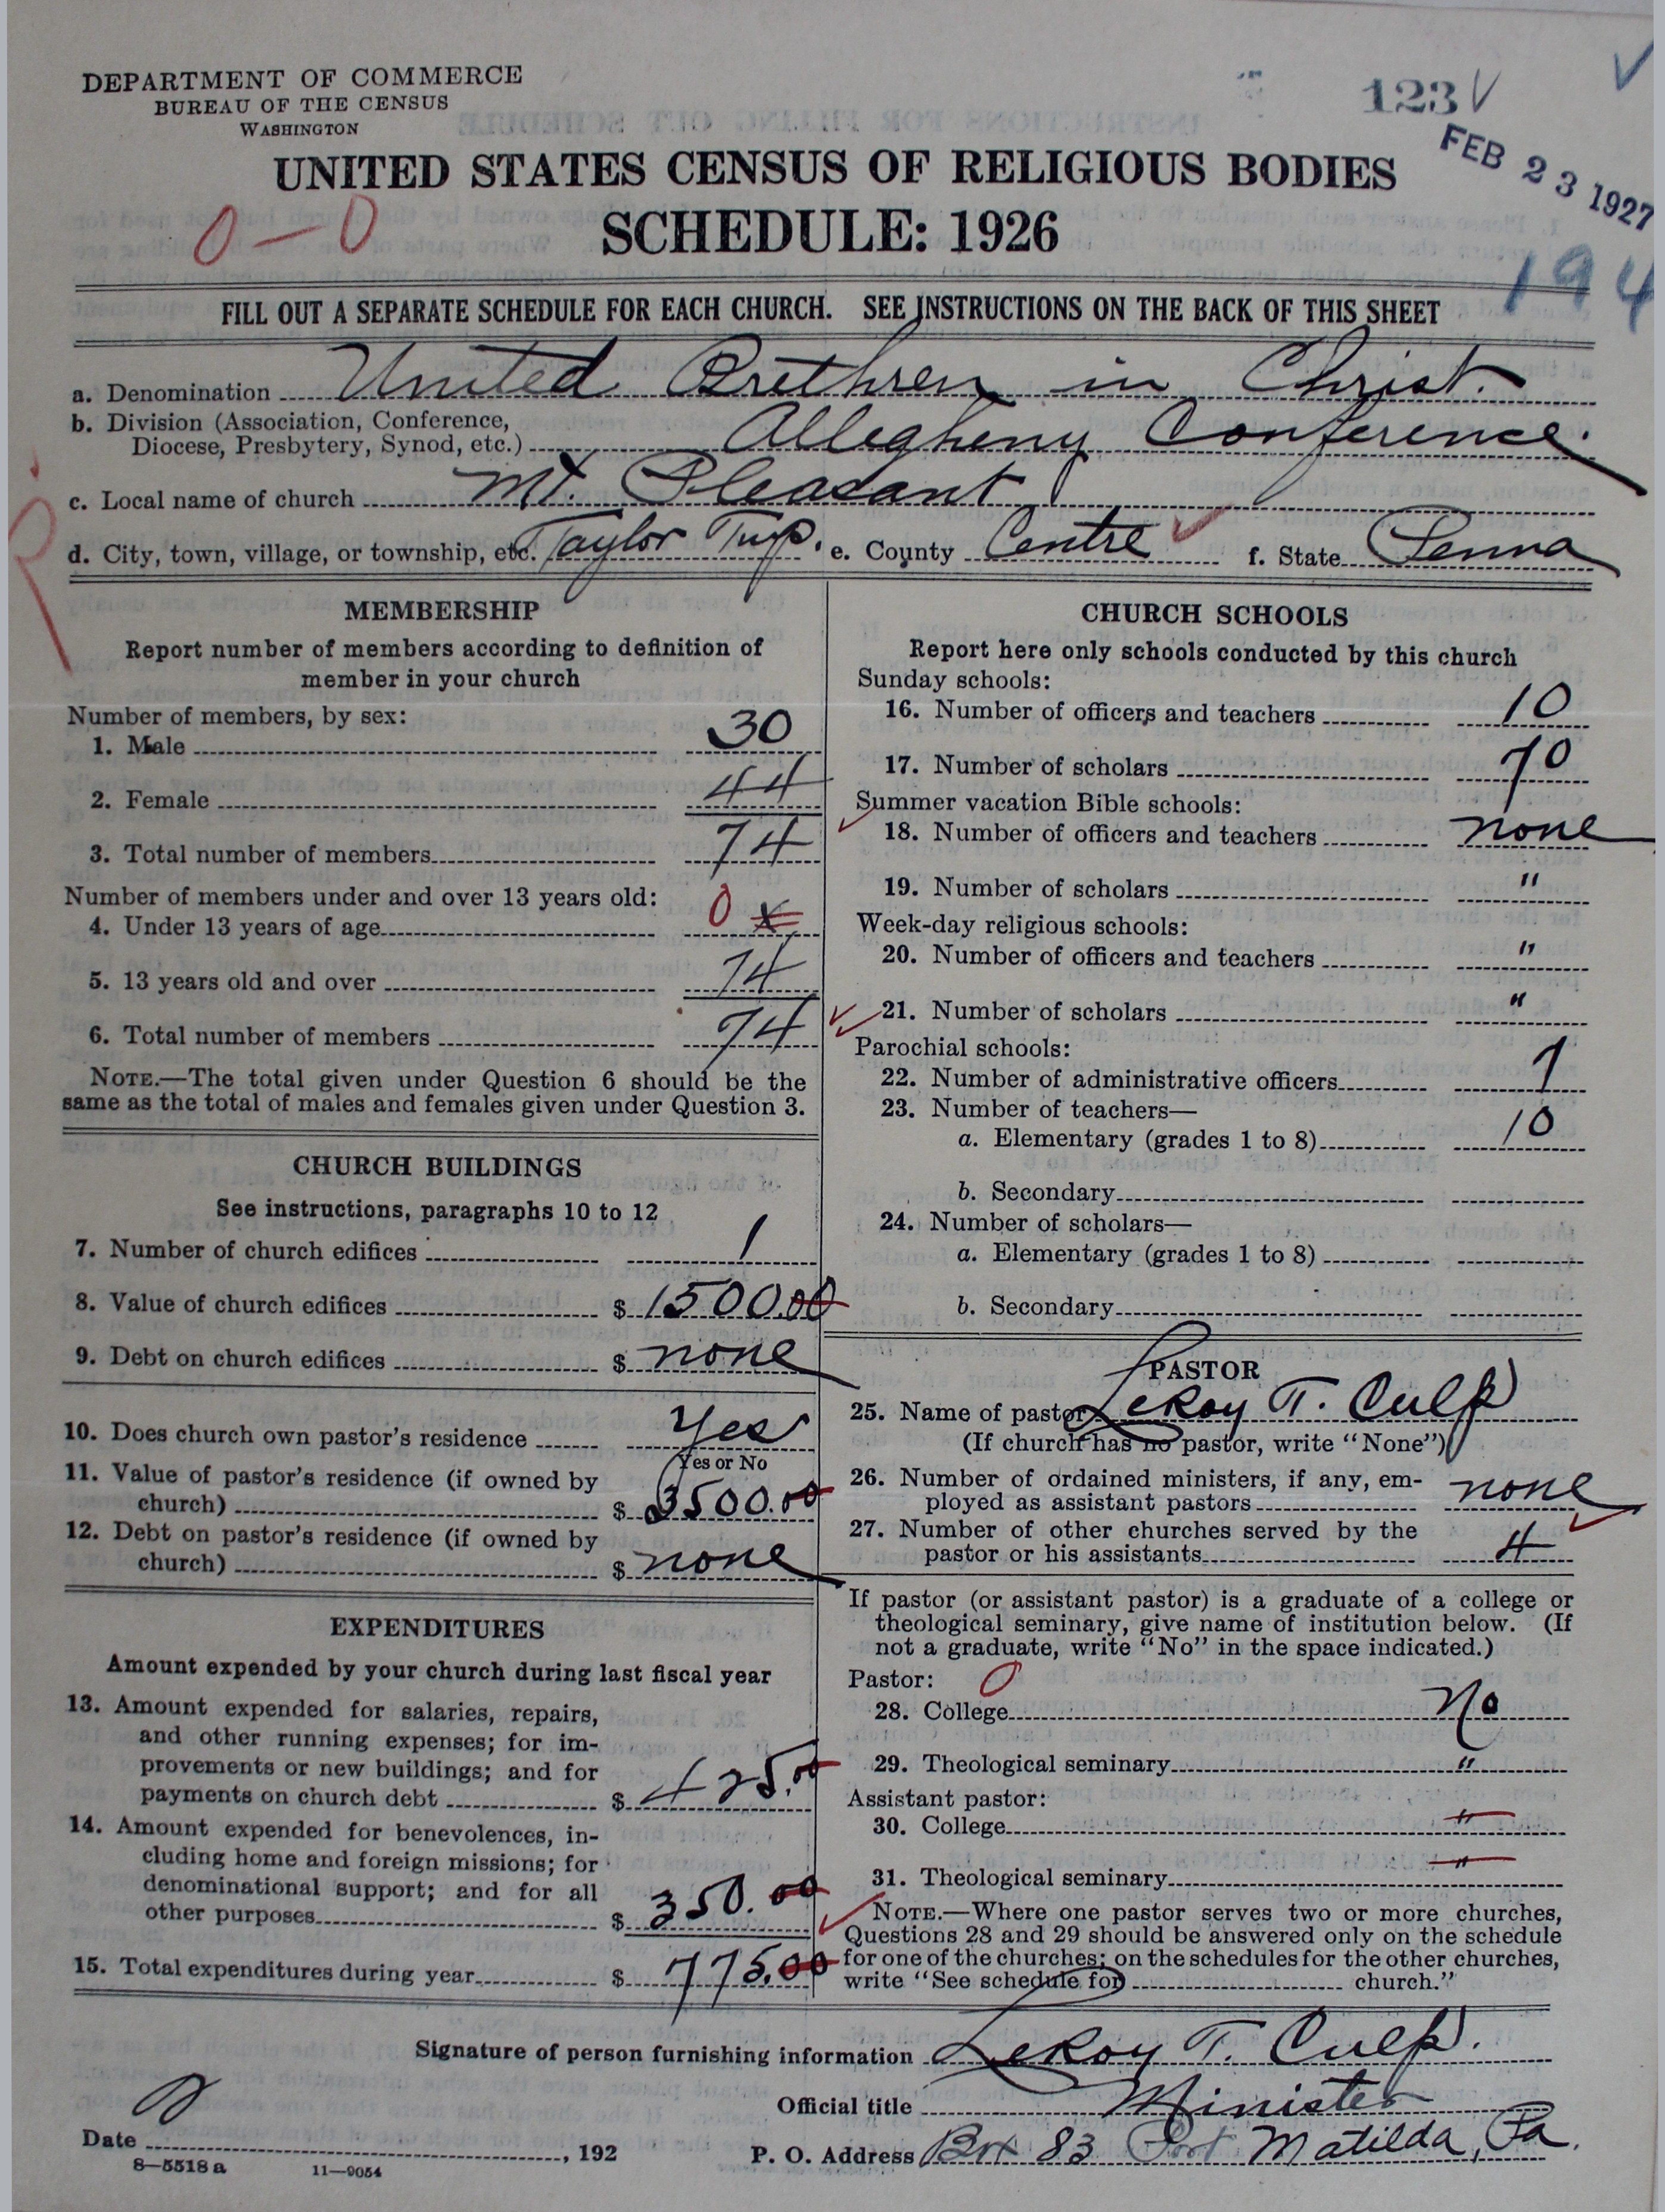 DEPARTMENT OF COMMERCE
BUREAU OF THE CENSUS
WASHINGTON
123 V
FEB 23 1927
UNITED STATES CENSUS OF RELIGIOUS BODIES
SCHEDULE: 1926
0-0
194
FILL OUT A SEPARATE SCHEDULE FOR EACH CHURCH. SEE INSTRUCTIONS ON THE BACK OF THIS SHEET
a. Denomination United Brethren in Christ.
b. Division (Association, Conference,
Diocese, Presbytery, Synod, etc.) Allegheny Conference.
c. Local name of church Mt. Pleasant
d. City, town, village, or township, etc. Taylor Twp. e. County Centre f. State Penna
MEMBERSHIP
Report number of members according to definition of
member in your church
Number of members, by sex:
1. Male 30
2. Female 44
3. Total number of members 74
Number of members under and over 13 years old:
4. Under 13 years of age 0 x
5. 13 years old and over 74
6. Total number of members 74
NOTE.—The total given under Question 6 should be the
same as the total of males and females given under Question 3.
CHURCH BUILDINGS
See instructions, paragraphs 10 to 12
7. Number of church edifices 1
8. Value of church edifices $ 1500.00
9. Debt on church edifices $ none
10. Does church own pastor's residence Yes
Yes or No
11. Value of pastor's residence (if owned by
church) $ 3500.00
12. Debt on pastor's residence (if owned by
church) $ none
EXPENDITURES
Amount expended by your church during last fiscal year
13. Amount expended for salaries, repairs,
and other running expenses; for im-
provements or new buildings; and for
payments on church debt $ 425.00
14. Amount expended for benevolences, in-
cluding home and foreign missions; for
denominational support; and for all
other purposes $ 350.00
15. Total expenditures during year $ 775.00
CHURCH SCHOOLS
Report here only schools conducted by this church
Sunday schools:
16. Number of officers and teachers 10
17. Number of scholars 70
Summer vacation Bible schools:
18. Number of officers and teachers none
19. Number of scholars "
Week-day religious schools:
20. Number of officers and teachers "
21. Number of scholars "
Parochial schools:
22. Number of administrative officers 1
23. Number of teachers—
a. Elementary (grades 1 to 8) 10
b. Secondary
24. Number of scholars—
a. Elementary (grades 1 to 8)
b. Secondary
PASTOR
25. Name of pastor LeRoy T. Culp
(If church has no pastor, write "None")
26. Number of ordained ministers, if any, em-
ployed as assistant pastors none
27. Number of other churches served by the
pastor or his assistants 4
If pastor (or assistant pastor) is a graduate of a college or
theological seminary, give name of institution below. (If
not a graduate, write "No" in the space indicated.)
Pastor: 0
28. College No
29. Theological seminary "
Assistant pastor:
30. College "
31. Theological seminary "
NOTE.—Where one pastor serves two or more churches,
Questions 28 and 29 should be answered only on the schedule
for one of the churches; on the schedules for the other churches,
write "See schedule for church."
Signature of person furnishing information LeRoy T. Culp.
Official title Minister
Date , 192
P. O. Address Box 83 Port Matilda, Pa.
8—5518 a 11—9054